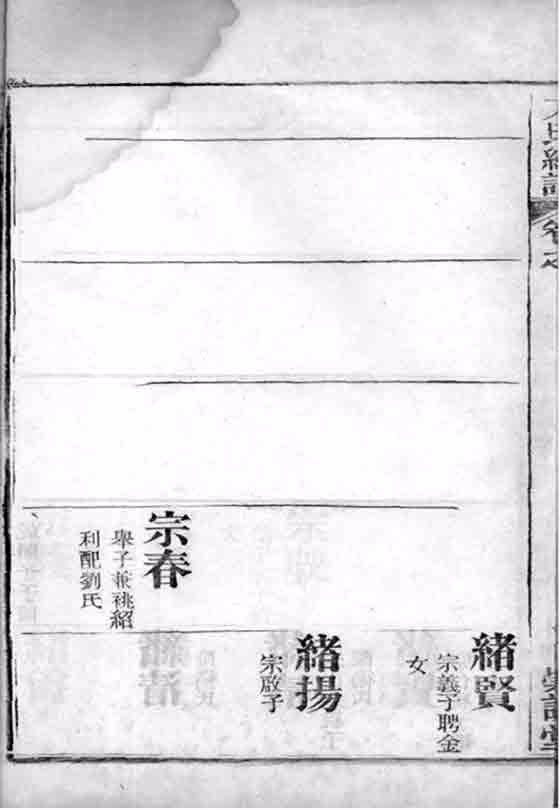 緒賢
宗義子聘金
女
緒揚
宗啟子
宗春
舉子兼祧紹
利配劉氏